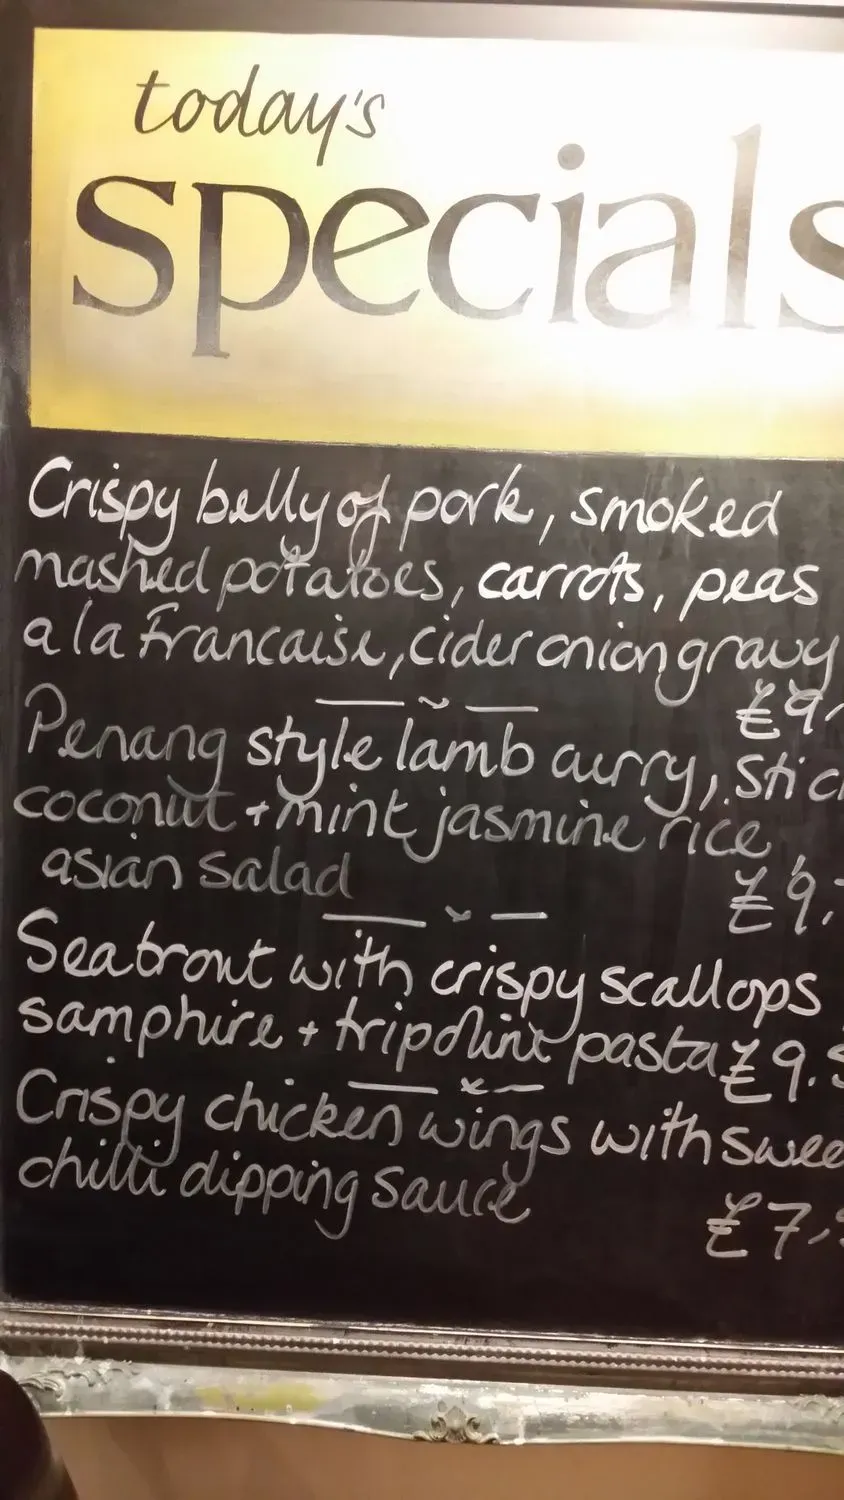 today's
specials
Crispy belly of pork, smoked
mashed potatoes, carrots, peas
a la francaise, cider onion gravy
£9.
Penang style lamb curry, Stic
coconut + mint jasmine rice,
asian salad
£9.
Seatrout with crispy scallops
samphire + tripoline pasta £9.
Crispy chicken wings with swee
chilli dipping sauce
£7.